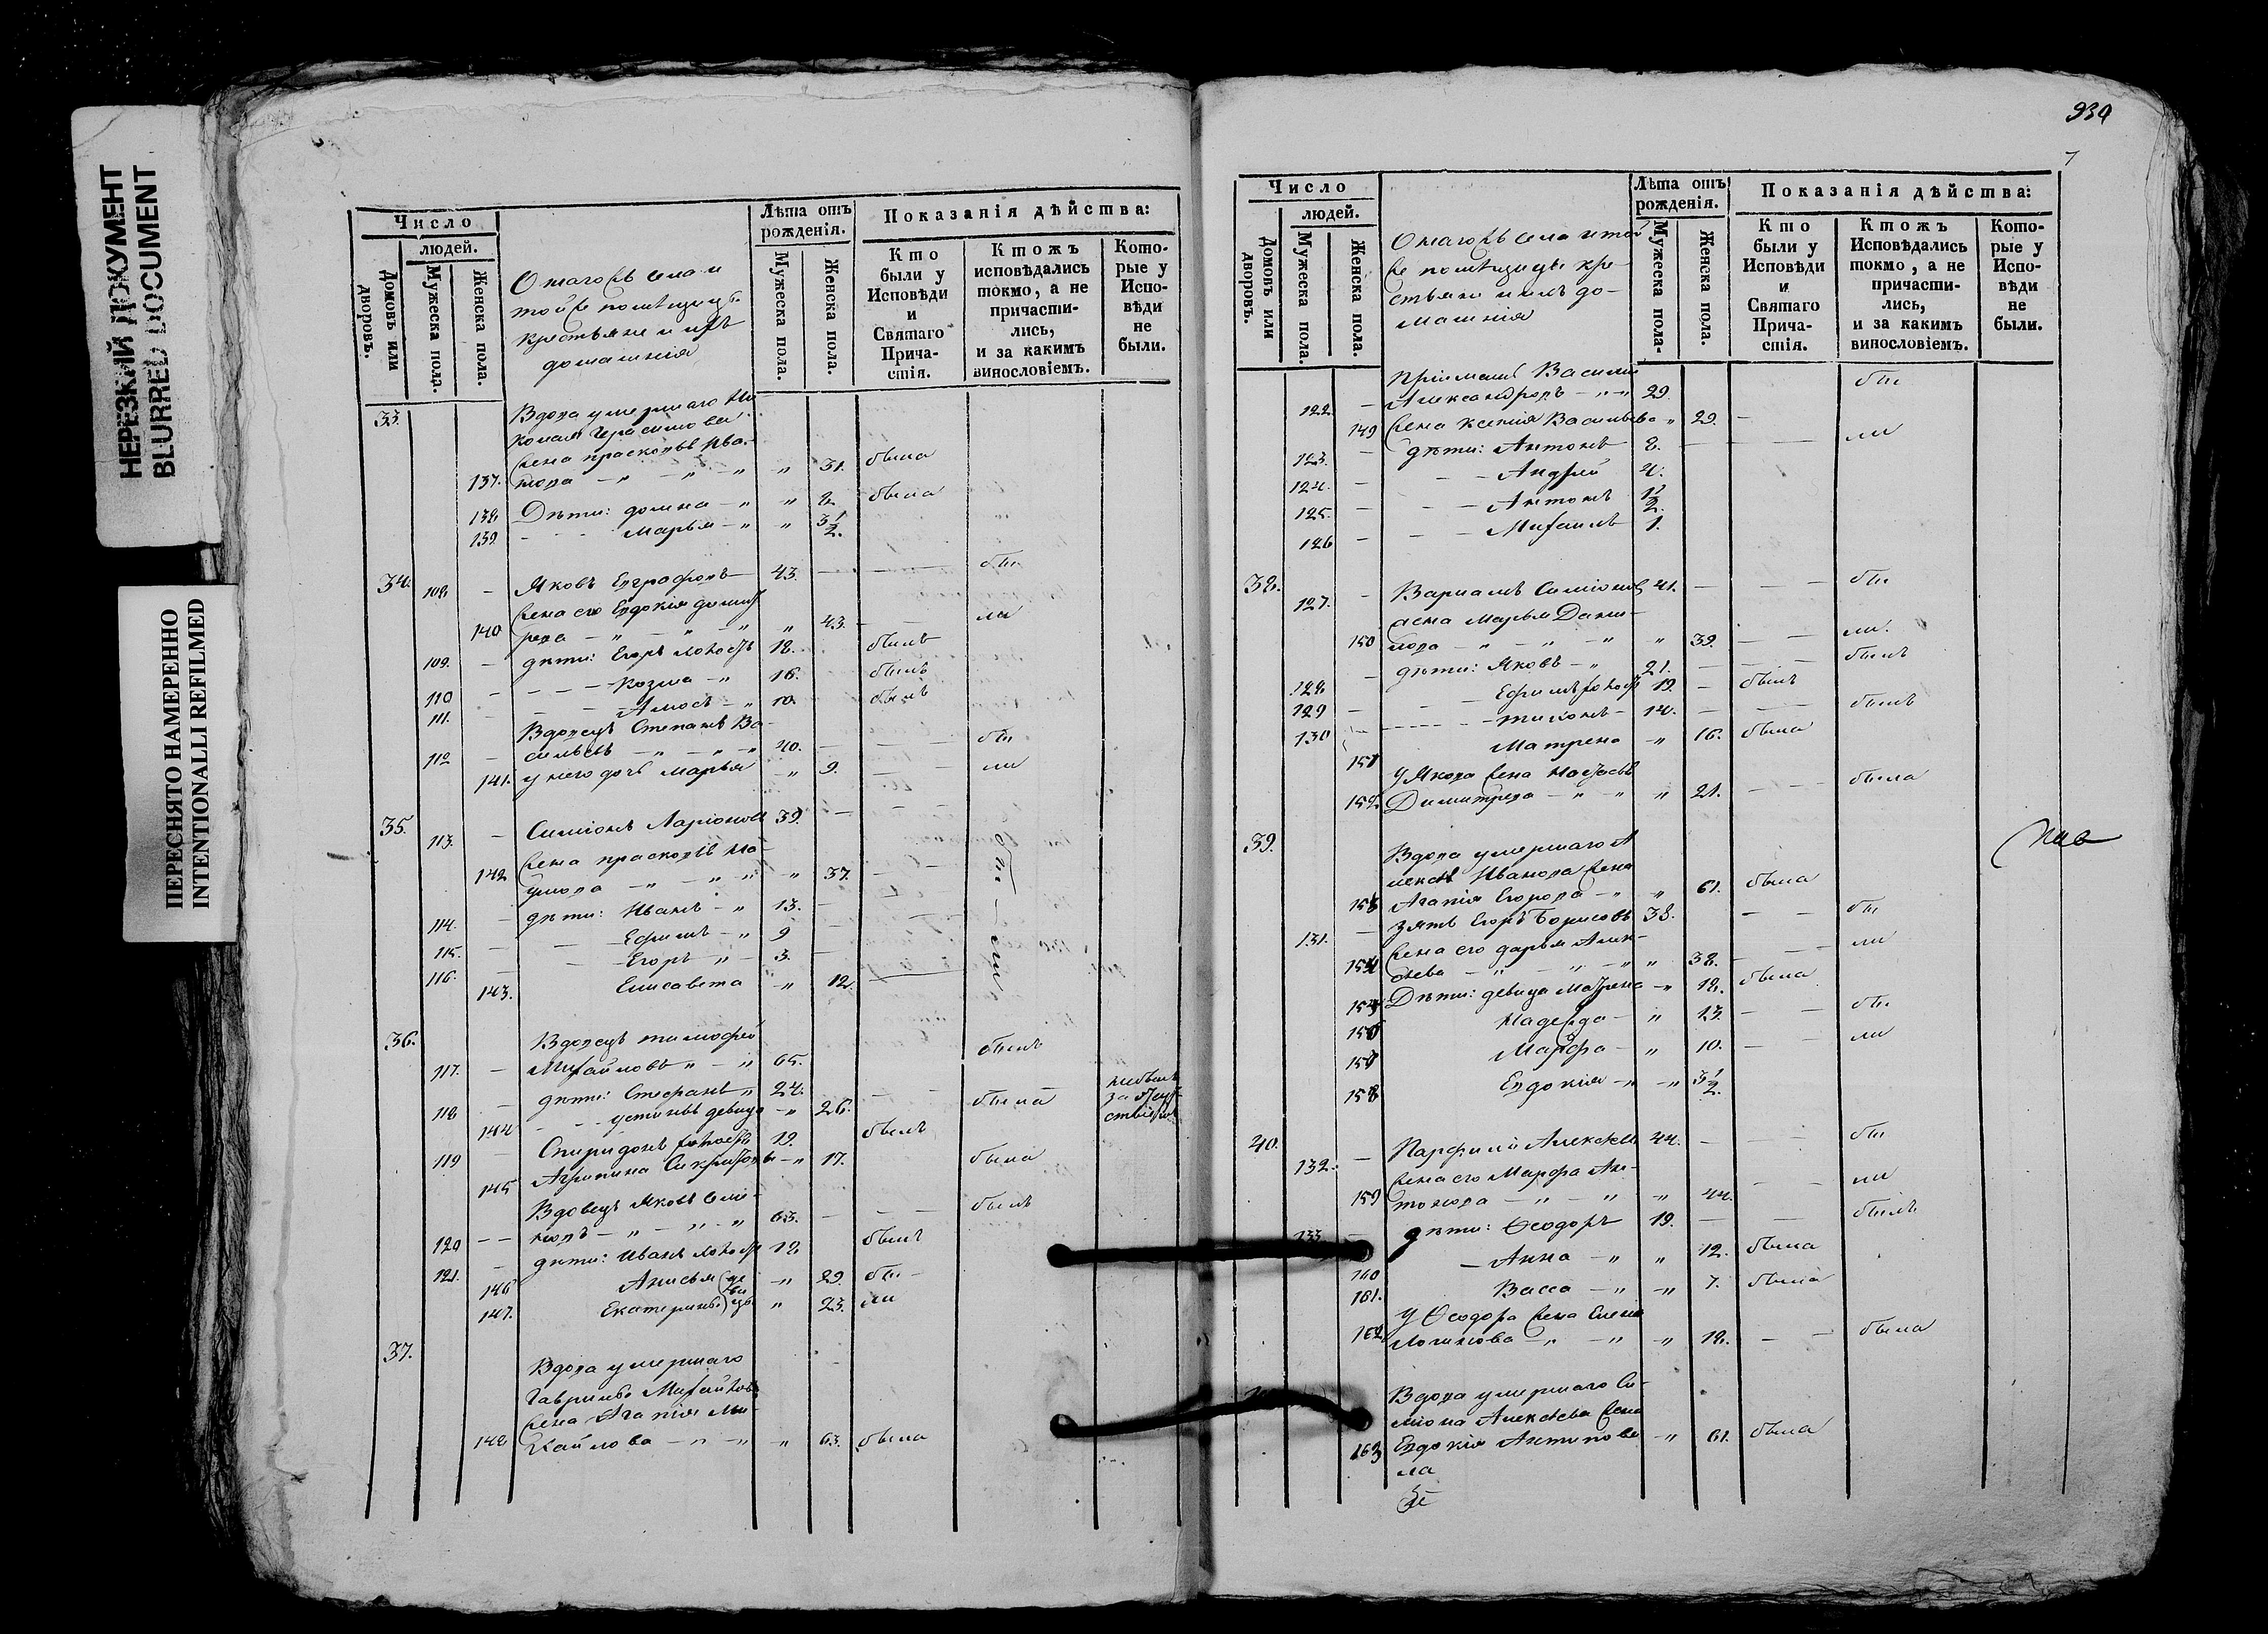 НЕРЕЗКИЙ ДОКУМЕНТ
BLURRED DOCUMENT
ПЕРЕСНЯТО НАМЕРЕННО
INTENTIONALLI REFILMED
Число
людей.
Домовъ или дворовъ.
Мужеска пола.
Женска пола.
Лѣта отъ рожденія.
Мужеска пола.
Женска пола.
Показанія дѣйства:
Кто были у Исповѣди и Святаго Причастія.
Ктожъ исповѣдались токмо, а не причастились, и за какимъ винословіемъ.
Которые у Исповѣди не были.
тойже помѣщицы
крестьяне и ихъ
домашнія
33. Вдова умершаго
жена
137. 31. была
138 Дѣти: 8 была
139 Марья 3 1/2.
34. 108. Яковъ Евграфовъ 43. бы
жена его Евдокія
140 43. ли
109. дѣти: Егоръ холостъ 18. былъ
110 Козма 16. былъ
111. Амосъ 10. былъ
Вдовецъ Степанъ Ва-
112 сильевъ 40. бы
141. у него дочь Марья 9. ли
35. 113. Симіонъ Ларіоновъ 39.
жена
142 37.
114. дѣти: Иванъ 13. бы
115. Ефимъ 9
116. Егоръ 3. ли
143. Елисавета 12.
36. Вдовецъ Тимофей
117. Михайловъ 65. былъ
118 дѣти: Стефанъ 24.
144 девица 26. была
119 Спиридонъ холостъ 19. былъ
145 Агрипина 17. была
Вдовецъ Яковъ Симі-
120 новъ 63. былъ
121. дѣти: Иванъ холостъ 18 былъ
146 Анисья 29. бы
147. Екатерина 23. ли
37. Вдова умершаго
Гаврилы Михайлова
жена Агапія Ми-
148 хайлова 63. была
934
7
Число
людей.
Домовъ или дворовъ.
Мужеска пола.
Женска пола.
Лѣта отъ рожденія.
Мужеска пола.
Женска пола.
Показанія дѣйства:
Кто были у Исповѣди и Святаго Причастія.
Ктожъ Исповѣдались токмо, а не причастились, и за какимъ винословіемъ.
Которые у Исповѣди не были.
же помѣщицы кре-
стьяне и ихъ до-
машнія
Пріимышъ Василій
122. Александровъ 29. бы
149 жена Ксенія Васильева 29.
123. дѣти: Антонъ 8. ли
124. Андрей 4.
125. Антонъ 1 1/2.
126 Михаилъ 1.
38. 127. Варламъ Симіоновъ 41. бы
жена Марья Дани-
150 лова 39. ли.
128 дѣти: Яковъ 21. былъ
129 Ефимъ холостъ 19. былъ
130 Тихонъ 14. былъ
151 Матрена 16. была
У Якова жена Настасья
152. Димитрева 21. была
39. Вдова умершаго А
лексѣя Иванова жена
153 Агапія Егорова 61. была
131. зять Егоръ Борисовъ 38. бы
жена его Дарья Алек-
154 сѣева 38. ли
155 Дѣти: девица Матрена 18. была
156 Надежда 13. бы
157 Марфа 10. ли
158 Евдокія 3 1/2.
40. 132. Парфилій Алексѣевъ 44. бы
жена его Марфа Ан-
159 тонова 44. ли
133 дѣти: Ѳеодоръ 19. былъ
160 Анна 12. была
161. Васса 7. была
У Ѳеодора жена Елена
162 Логинова 18. была
Вдова умершаго Си-
міона Алексѣева жена
163 Евдокія Антипова 61. была
ла